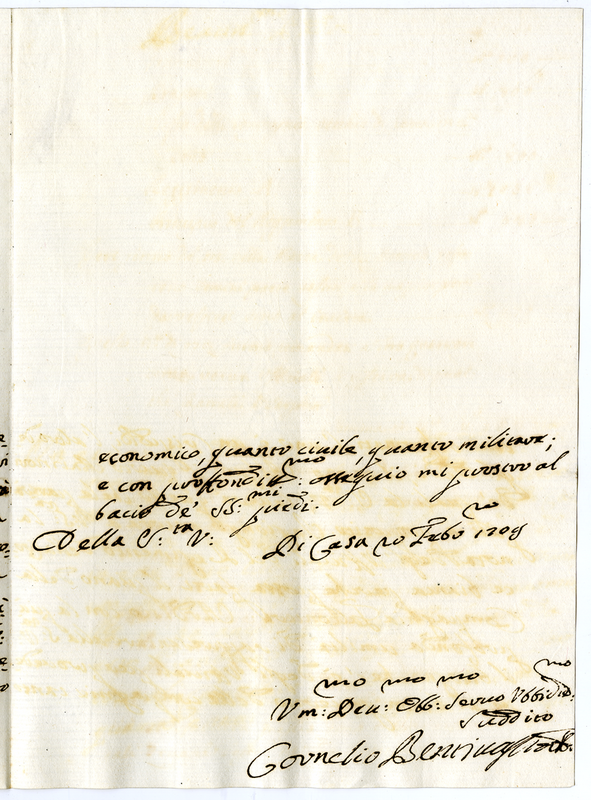 economico, quanto civile, quanto militare;
e con profondiss:mo ossequio mi prostro al
bacio de' SS:mi piedi.
Della S:tà V: Di Casa 20 Febbro 1709
Um:mo Dev:mo Obb:mo Servo Ubbidie:mo
Suddito
Cornelio Bentivoglio